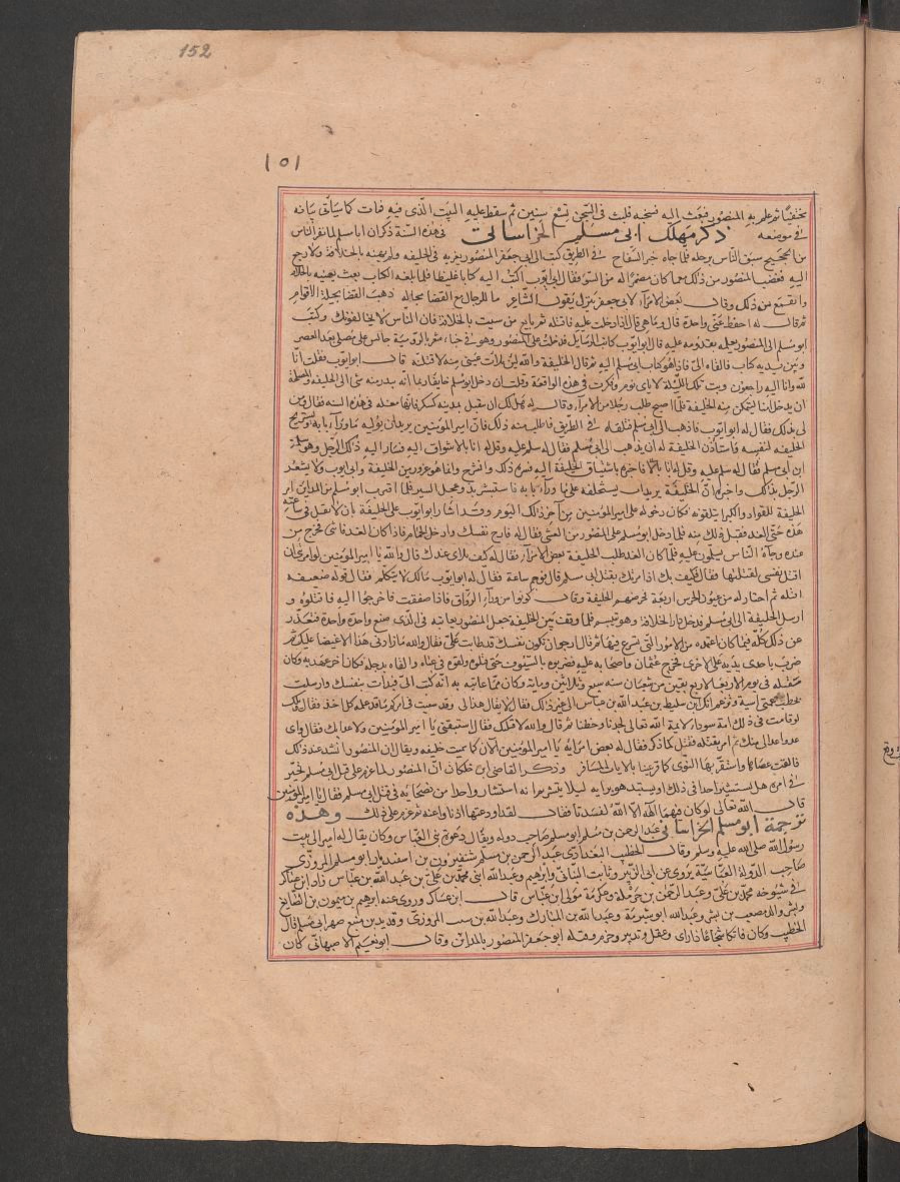 152
١٥١
مختفيا ثم علم به المنصور فبعث اليه فسجنه فلبث في السجن تسع سنين ثم سقط عليه البيت الذي فيه فمات كما سيأتي بيانه
في موضعه ذكر مهلك ابي مسلم الخراساني في هذه السنة ذكر ان ابا مسلم لما نفر الناس
من الحجيج سبق الناس بمرحلة فلما جاه خبر السفاح في الطريق كتب الى ابي جعفر المنصور يعزيه في الخليفة ولم يهنه بالخلافة ولا رجع
اليه فغضب المنصور من ذلك مع ما كان مضمرا له من السو فقال لابي ايوب اكتب اليه كتابا غليظا فلما بلغه الكتاب بعث يهنيه بالخلافة
وانقمع من ذلك وقال بعض الامراء لابي جعفر
ثم قال له احفظ عني واحدة قال وما هي قال اذا دخلت عليه فاقتله ثم بايع من شيت بالخلافة فان الناس لا يخالفونك وكتب
ابو مسلم الى المنصور يعلمه بقدومه عليه قال ابو ايوب كاتب الرسايل فدخلت على المنصور وهو في خباء شعر بالرومية جالس على مصلى بعد العصر
وبين يديه كتاب فالقاه الي فاذا هو كتاب ابي مسلم اليه ثم قال الخليفة والله لين ملأت عيني منه لاقتلنه قال ابو ايوب فقلت انا
لله وانا اليه راجعون وبت تلك الليلة لا ياتي نوم وفكرت في هذه الواقعة وقلت ان دخل ابو مسلم خايفا ربما
ان يدخل امنا ليتمكن منه الخليفة فلما اصبح طلب رجلا من الامراء وقال له هل لك ان تتقبل مدينة كسكر فانها مغلة في هذه السنة فقال ومن
لي بذلك فقال له ابو ايوب فاذهب الى ابي مسلم فتلقاه في الطريق فاطلب منه ذلك فان امير المؤمنين يريد ان يوليه ما وراء بابه ويستريح
الخليفة لنفسه فاستاذن الخليفة له ان يذهب الى ابي مسلم فقال له سلم عليه وقل له انا بالاشواق اليه فسار اليه ذلك الرجل وهو سلمة
الرجل بذلك واخبره ان الخليفة يريد ان يستخلفه على ما وراء بابه فاستبشر بذلك وعجل السير فلما اقترب ابو مسلم من المداين امر
الخليفة القواد والاكبرا يتلقونه وكان دخوله على امير المؤمنين من اخر ذلك اليوم وقد اشار ابو ايوب على الخليفة بان لا يقتل في ساعته
هذه حتى الغد فقبل ذلك منه فلما دخل ابو مسلم على المنصور من العشي فقال له فارح نفسك وادخل الحمام فاذا كان الغد فاتني فخرج من
عنده وجاه الناس يسلمون عليه فلما كان الغد طلب الخليفة بعض الامراء فقال له كيف بلاي عندك قال والله يا امير المؤمنين لو امرتني ان
اقتل نفسي لقتلتها فقال فكيف بك اذا امرتك بقتل ابي مسلم قال فوجم ساعة فقال له ابو ايوب مالك لا تتكلم فقال قوله ضعيفه
اقتله ثم اختار له من عيون الحرس اربعة فحرضهم الخليفة وقال كونوا من وراء الرواق فاذا صفقت فاخرجوا اليه فاقتلوه و
ارسل الخليفة الى ابي مسلم فدخل دار الخلافة وهو تبسم فلما وقف بين يدي الخليفة جعل المنصور يعاتبه في الذي صنع واحدة واحدة فيعتذر
ضرب باحدى يديه على الاخرى فخرج عثمان واصحابه عليه فضربوه بالسيوف حتى قتلوه ولفوه في عباء والقاه بدجلة وكان اخر عهد به وكان
مقتله في يوم الاربعاء لاربع بقين من شعبان سنة سبع وثلاثين ومايه وكان مما عاتبه به انه كتب الى فبدات بنفسك وارسلت
تخطب عمتي اسية وتزعم انك ابن سليط بن عبد الله بن عباس
عدو اعدا لي منك ثم امر بقتله فقتل كما ذكر فقال له بعض امرايه يا امير المؤمنين الان كما صرت خليفة ويقال ان المنصور انشد عند ذلك
فالقت عصاها واستقر بها النوى كما قر عينا بالاياب المسافر وذكر القاضي ابن خلكان ان المنصور لما عزم على قتل ابي مسلم تحير
في امره هل يستشير احدا في ذلك او يستبد هو برايه ليلا يشيع ثم انه استشار واحدا من نصحايه في قتل ابي مسلم فقال يا امير المؤمنين
قال الله تعالى لو كان فيهما الهة الا الله لفسدتا فقال لقد اودعتها اذنا واعية ثم عزم على ذلك وهذه
ترجمة ابو مسلم الخراساني عبد الرحمن بن مسلم ابو مسلم صاحب دولة ويقال دعوة بني العباس وكان يقال له امير ال بيت
رسول الله صلى الله عليه وسلم وقال الخطيب البغدادي عبد الرحمن بن مسلم بن شنفيرون بن اسفنديار ابو مسلم المروزي
صاحب الدولة العباسية يروي عن ابي الزبير وثابت البناني وابراهيم وعبد الله ابني محمد بن علي بن عبد الله بن عباس زاد ابن عساكر
في شيوخه محمد بن علي وعبد الرحمن بن حرملة وعكرمة مولى ابن عباس قال ابن عساكر وروى عنه ابرهيم بن ميمون بن الصايغ
وبشر والد مصعب بن بشر وعبد الله ابو شبرمة وعبد الله بن المبارك وعبد الله بن منيب المروزي وقديد بن منيع صهر ابي مسلم قال
الخطيب وكان فاتكا شجاعا ذا راي وعقل وتدبير وحزم وقتله ابو جعفر المنصور بالمداين وقال ابو نعيم الاصبهاني كان